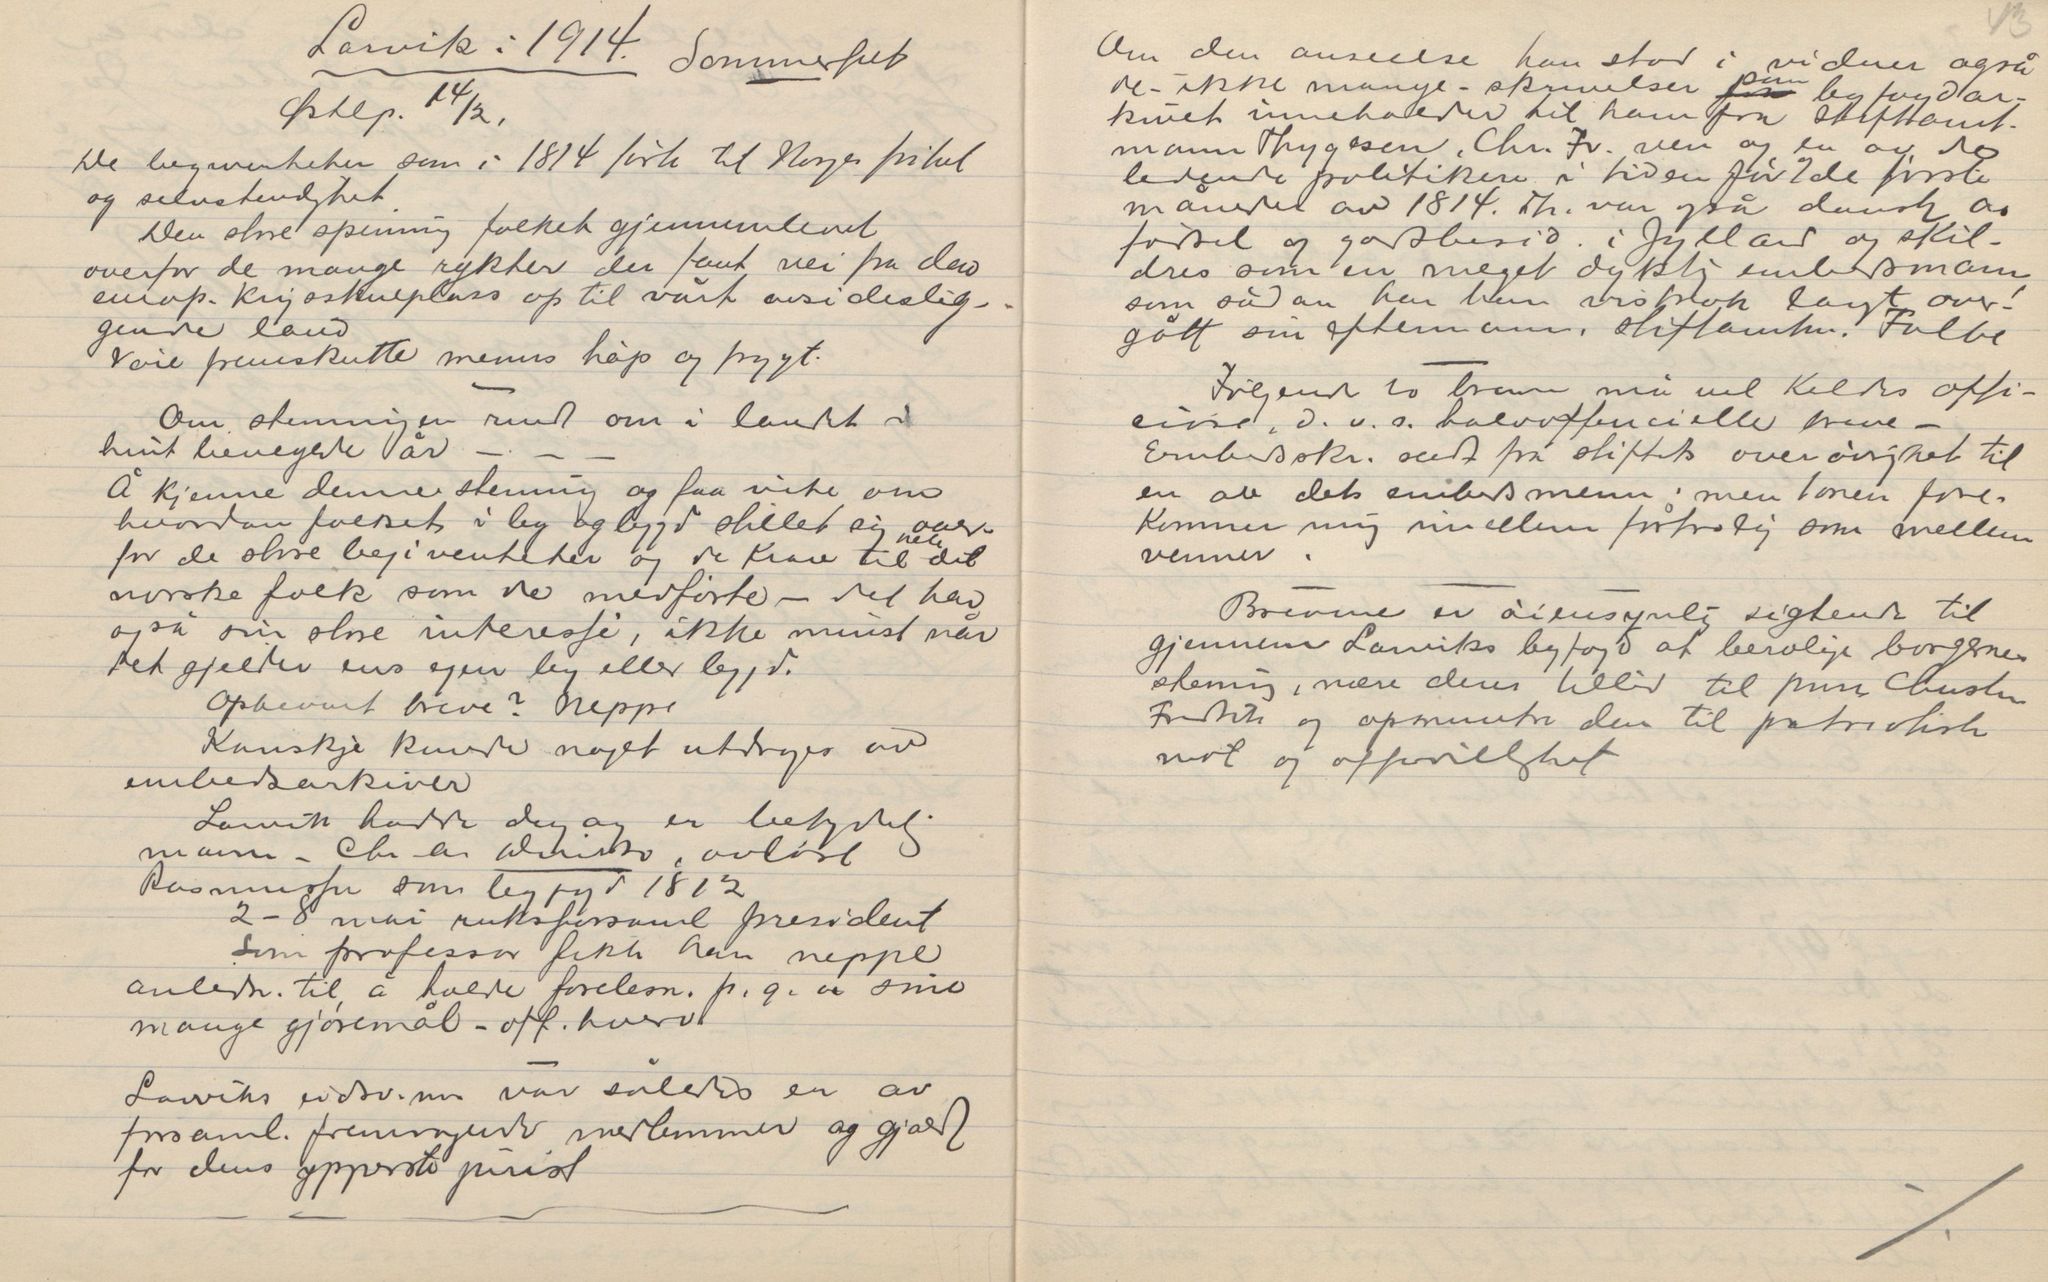 Larvik i 1914. Sommerfelt
Østlp. 14/2.
De begivenheter som i 1814 førte til Norges frihet
og selvstendighet.
Den store spenning folket gjennemlevet
overfor de mange rykter der fant vei fra den
europ. krigsskueplass op til vårt avsideslig-
gende land
Våre fremskutte menns håp og frygt.
Om stemningen rundt om i landet i
hint bevegede år - - -
Å kjenne denne stemning og faa vite om
hvordan folket i by og bygd stillet sig over-
for de store begivenheter og de krav til hele det
norske folk som de medførte - det har
også sin store interesse, ikke minst når
det gjelder ens egen by eller bygd.
Opbevart breve? Neppe
Kanskje kunde noget utdrages av
embedsarkiver
Larvik hadde dengang en betydelig
mann - Chr. avløst
Rasmussen som byfogd 1812
2-8 mai riksforsaml president
Som professor fikk han neppe
anledn. til å holde forelesn. p. g. a sine
mange gjøremål - off. hverv
Larviks eidsv. m. var således en av
forsaml. fremragende medlemmer og gjaldt
for dens ypperste jurist
43
Om den anseelse han stod i vidner også
de - ikke mange - skrivelser som byfogdar-
kivet inneholder til ham fra stiftamt-
mann Thygesen, Chr. Fr. ven og en av de
ledende politikere i tiden før de første
måneder av 1814. Th. var også dansk av
fødsel og godsbesid. i Jylland og skil-
dres som en meget dyktig embedsmann,
som sådan har han visstnok langt over-
gått sin eftermann, stiftamtm. Falbe
Følgende to breve må vel kaldes offi-
ciøse, d. v. s. halvofficielle breve -
Embedsskr. sendt fra stiftets overøvrighet til
en av dets embedsmenn; men tonen fore-
kommer mig imellem fortrolig som mellem
venner.
Brevene er øiensynlig sigtende til
gjennem Larviks byfogd at berolige borgernes
stemning, nære deres tillid til prins Christian
Fredrik og opmuntre dem til patriotisk
mot og offervillighet